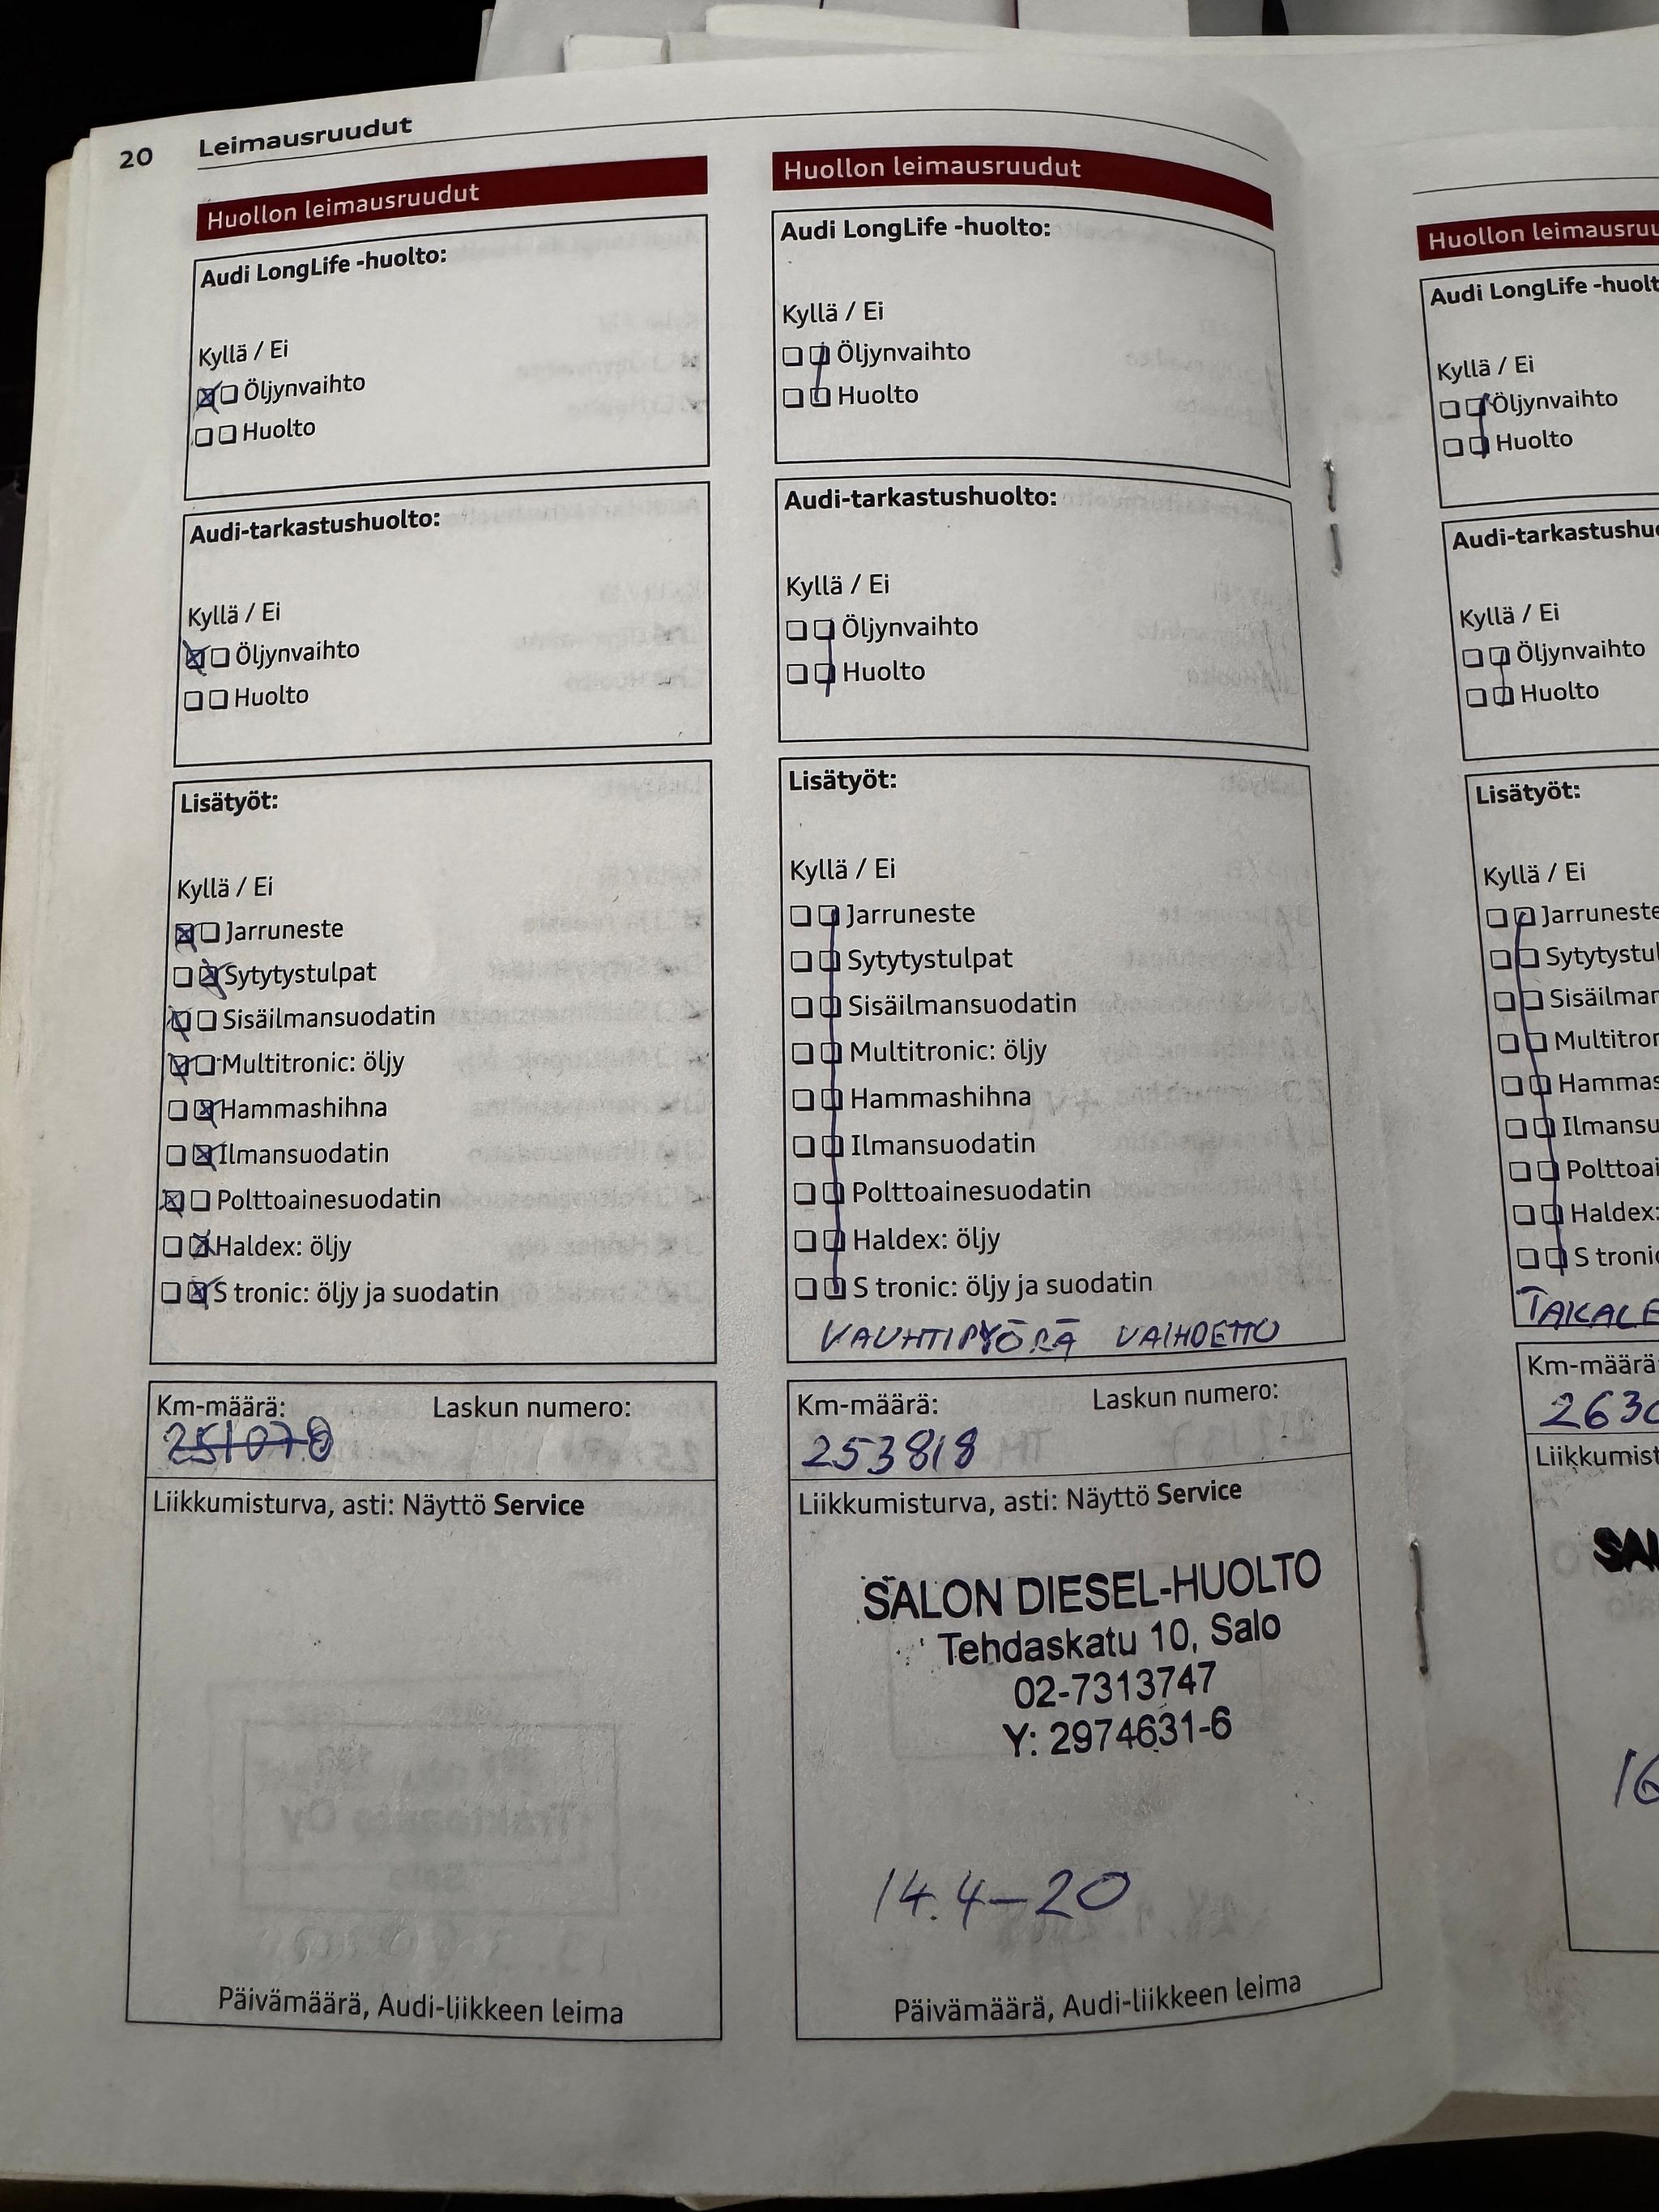 20 Leimausruudut
Huollon leimausruudut
Audi LongLife -huolto:
Kyllä / Ei
Öljynvaihto
Huolto
Audi-tarkastushuolto:
Kyllä / Ei
Öljynvaihto
Huolto
Lisätyöt:
Kyllä / Ei
Jarruneste
Sytytystulpat
Sisäilmansuodatin
Multitronic: öljy
Hammashihna
Ilmansuodatin
Polttoainesuodatin
Haldex: öljy
S tronic: öljy ja suodatin
Km-määrä: Laskun numero:
251070
Liikkumisturva, asti: Näyttö Service
Päivämäärä, Audi-liikkeen leima
Huollon leimausruudut
Audi LongLife -huolto:
Kyllä / Ei
Öljynvaihto
Huolto
Audi-tarkastushuolto:
Kyllä / Ei
Öljynvaihto
Huolto
Lisätyöt:
Kyllä / Ei
Jarruneste
Sytytystulpat
Sisäilmansuodatin
Multitronic: öljy
Hammashihna
Ilmansuodatin
Polttoainesuodatin
Haldex: öljy
S tronic: öljy ja suodatin
VAUHTIPYÖRÄ VAIHDETTU
Km-määrä: Laskun numero:
253818
Liikkumisturva, asti: Näyttö Service
SALON DIESEL-HUOLTO
Tehdaskatu 10, Salo
02-7313747
Y: 2974631-6
14.4-20
Päivämäärä, Audi-liikkeen leima
Huollon leimausruu
Audi LongLife -huolt
Kyllä / Ei
Öljynvaihto
Huolto
Audi-tarkastushuo
Kyllä / Ei
Öljynvaihto
Huolto
Lisätyöt:
Kyllä / Ei
Jarruneste
Sytytystul
Sisäilmar
Multitror
Hammas
Ilmansu
Polttoai
Haldex:
S tronic
TAKALE
Km-määrä:
2630
Liikkumist
SAL
16